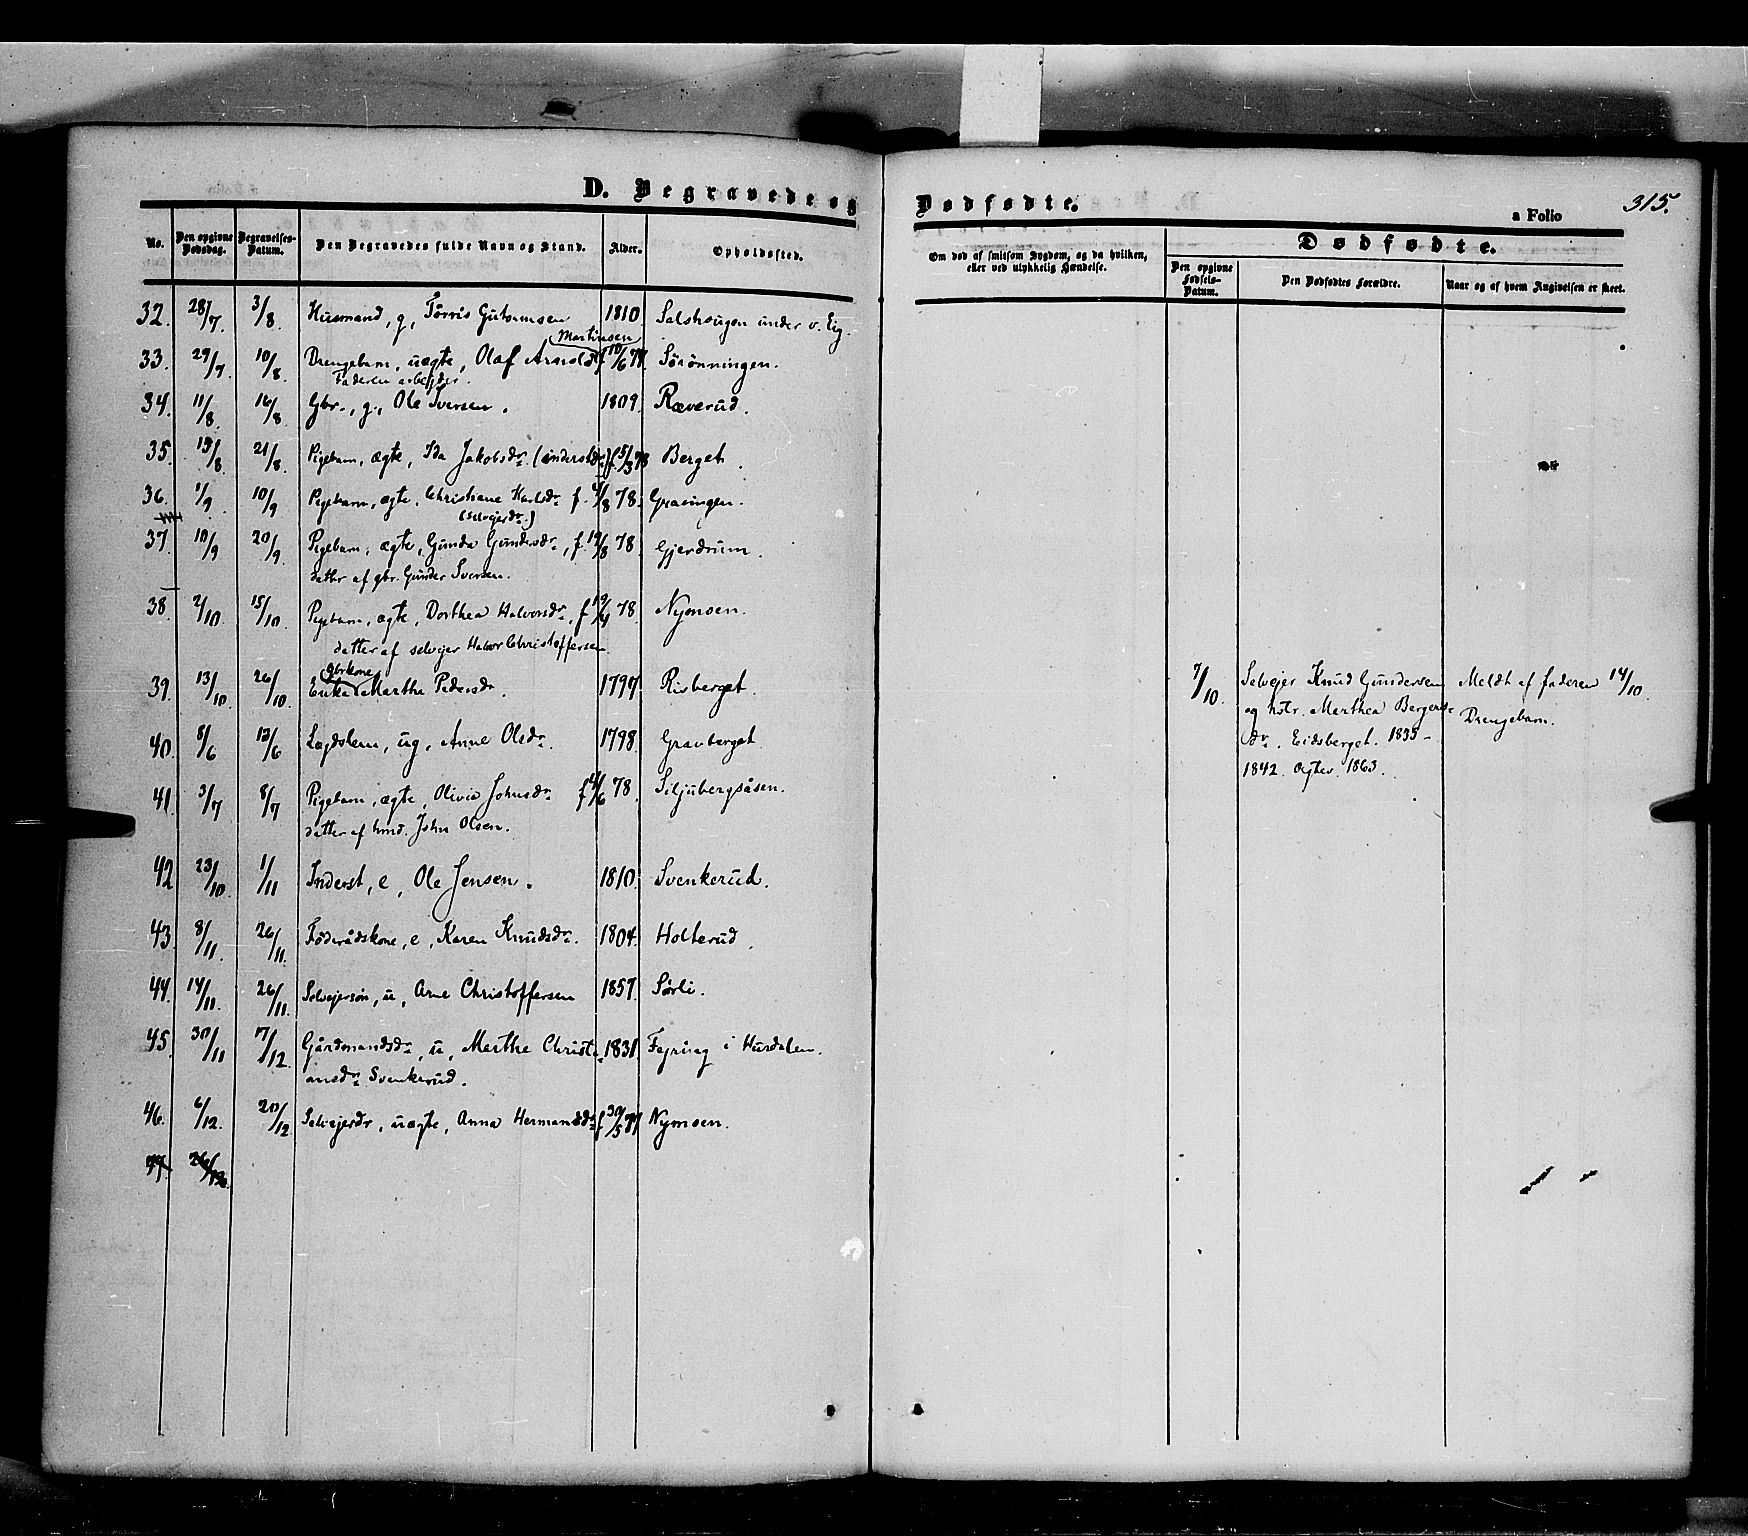 D. Begravede og Dødfødte.
a Folio 315.
No. Den opgivne Dødsdag. Begravelses-Datum. Den Begravedes fulde Navn og Stand. Alder. Opholdssted.
Om død af smitsom Sygdom, og da hvilken, eller ved ulykkelig Hændelse.
Dødfødte.
Den opgivne Fødsels-Datum. Den Dødfødtes Forældre. Naar og af hvem Angivelsen er skeet.
32. 28/7 3/8. Husmand, g, Torris Gutormsen 1810. Salshougen under v. Eig.
Martinsen
33. 29/7 10/8. Drengebarn, uægte, Olaf Arnold f 10/6 78. Sörönningen.
Faderen arbejder.
34. 11/8. 16/8. Gbr., g., Ole Iversen. 1809. Ræverud.
35. 15/8. 21/8. Pigebarn, ægte, Ida Jakobsdr. (inderstdr.) f. 5/3 78 Berget.
36. 1/9. 10/9 Pigebarn, ægte, Christiane Karlsdr. f. 4/8 78. Gravingen.
(selvejerdr.)
37. 10/9 20/9. Pigebarn, ægte, Gunda Gundersdr., f. 19/8 78. Gjerdrum.
datter af gbr. Gunder Iversen.
38. 2/10. 15/10. Pigebarn, ægte, Dorthea Halvorsdr., f 19/4 78. Nymoen.
datter af selvejer Halvor Christoffersen.
gbrkone
39. 13/10 26/10. Enke Marthe Pedersdr. 1797. Risberget.
7/10. Selvejer Knud Gundersen Meldt af faderen 14/10.
og hstr. Marthea Bergers-
Drengebarn.
dr. Eidsberget. 1835 -
1842. Ægtev. 1863.
40. 8/6 13/6. Lægdslem, ug, Anne Olsdr. 1798. Gravberget.
41. 3/7 8/7 Pigebarn, ægte, Olivia Johnsdr. f 4/6 78. Siljubergsåsen.
datter af hmd. John Olsen.
42 23/10. 1/11 Inderst, e, Ole Jensen. 1810. Svenkerud.
43. 8/11. 26/11. Föderådskone, e, Karen Knudsdr. 1804. Holterud.
44. 14/11. 26/11. Selvejersön, u, Arne Christoffersen 1857. Sörli.
45. 30/11 7/12. Gårdmandsdr., u, Marthe Christi- 1831. Fejring i Hurdalen.
ansdr. Svenkerud.
46. 6/12. 20/12 Selvejerdr, uægte, Anna Hermansdr. f 30/5 77 Nymoen.
47. 26/12.